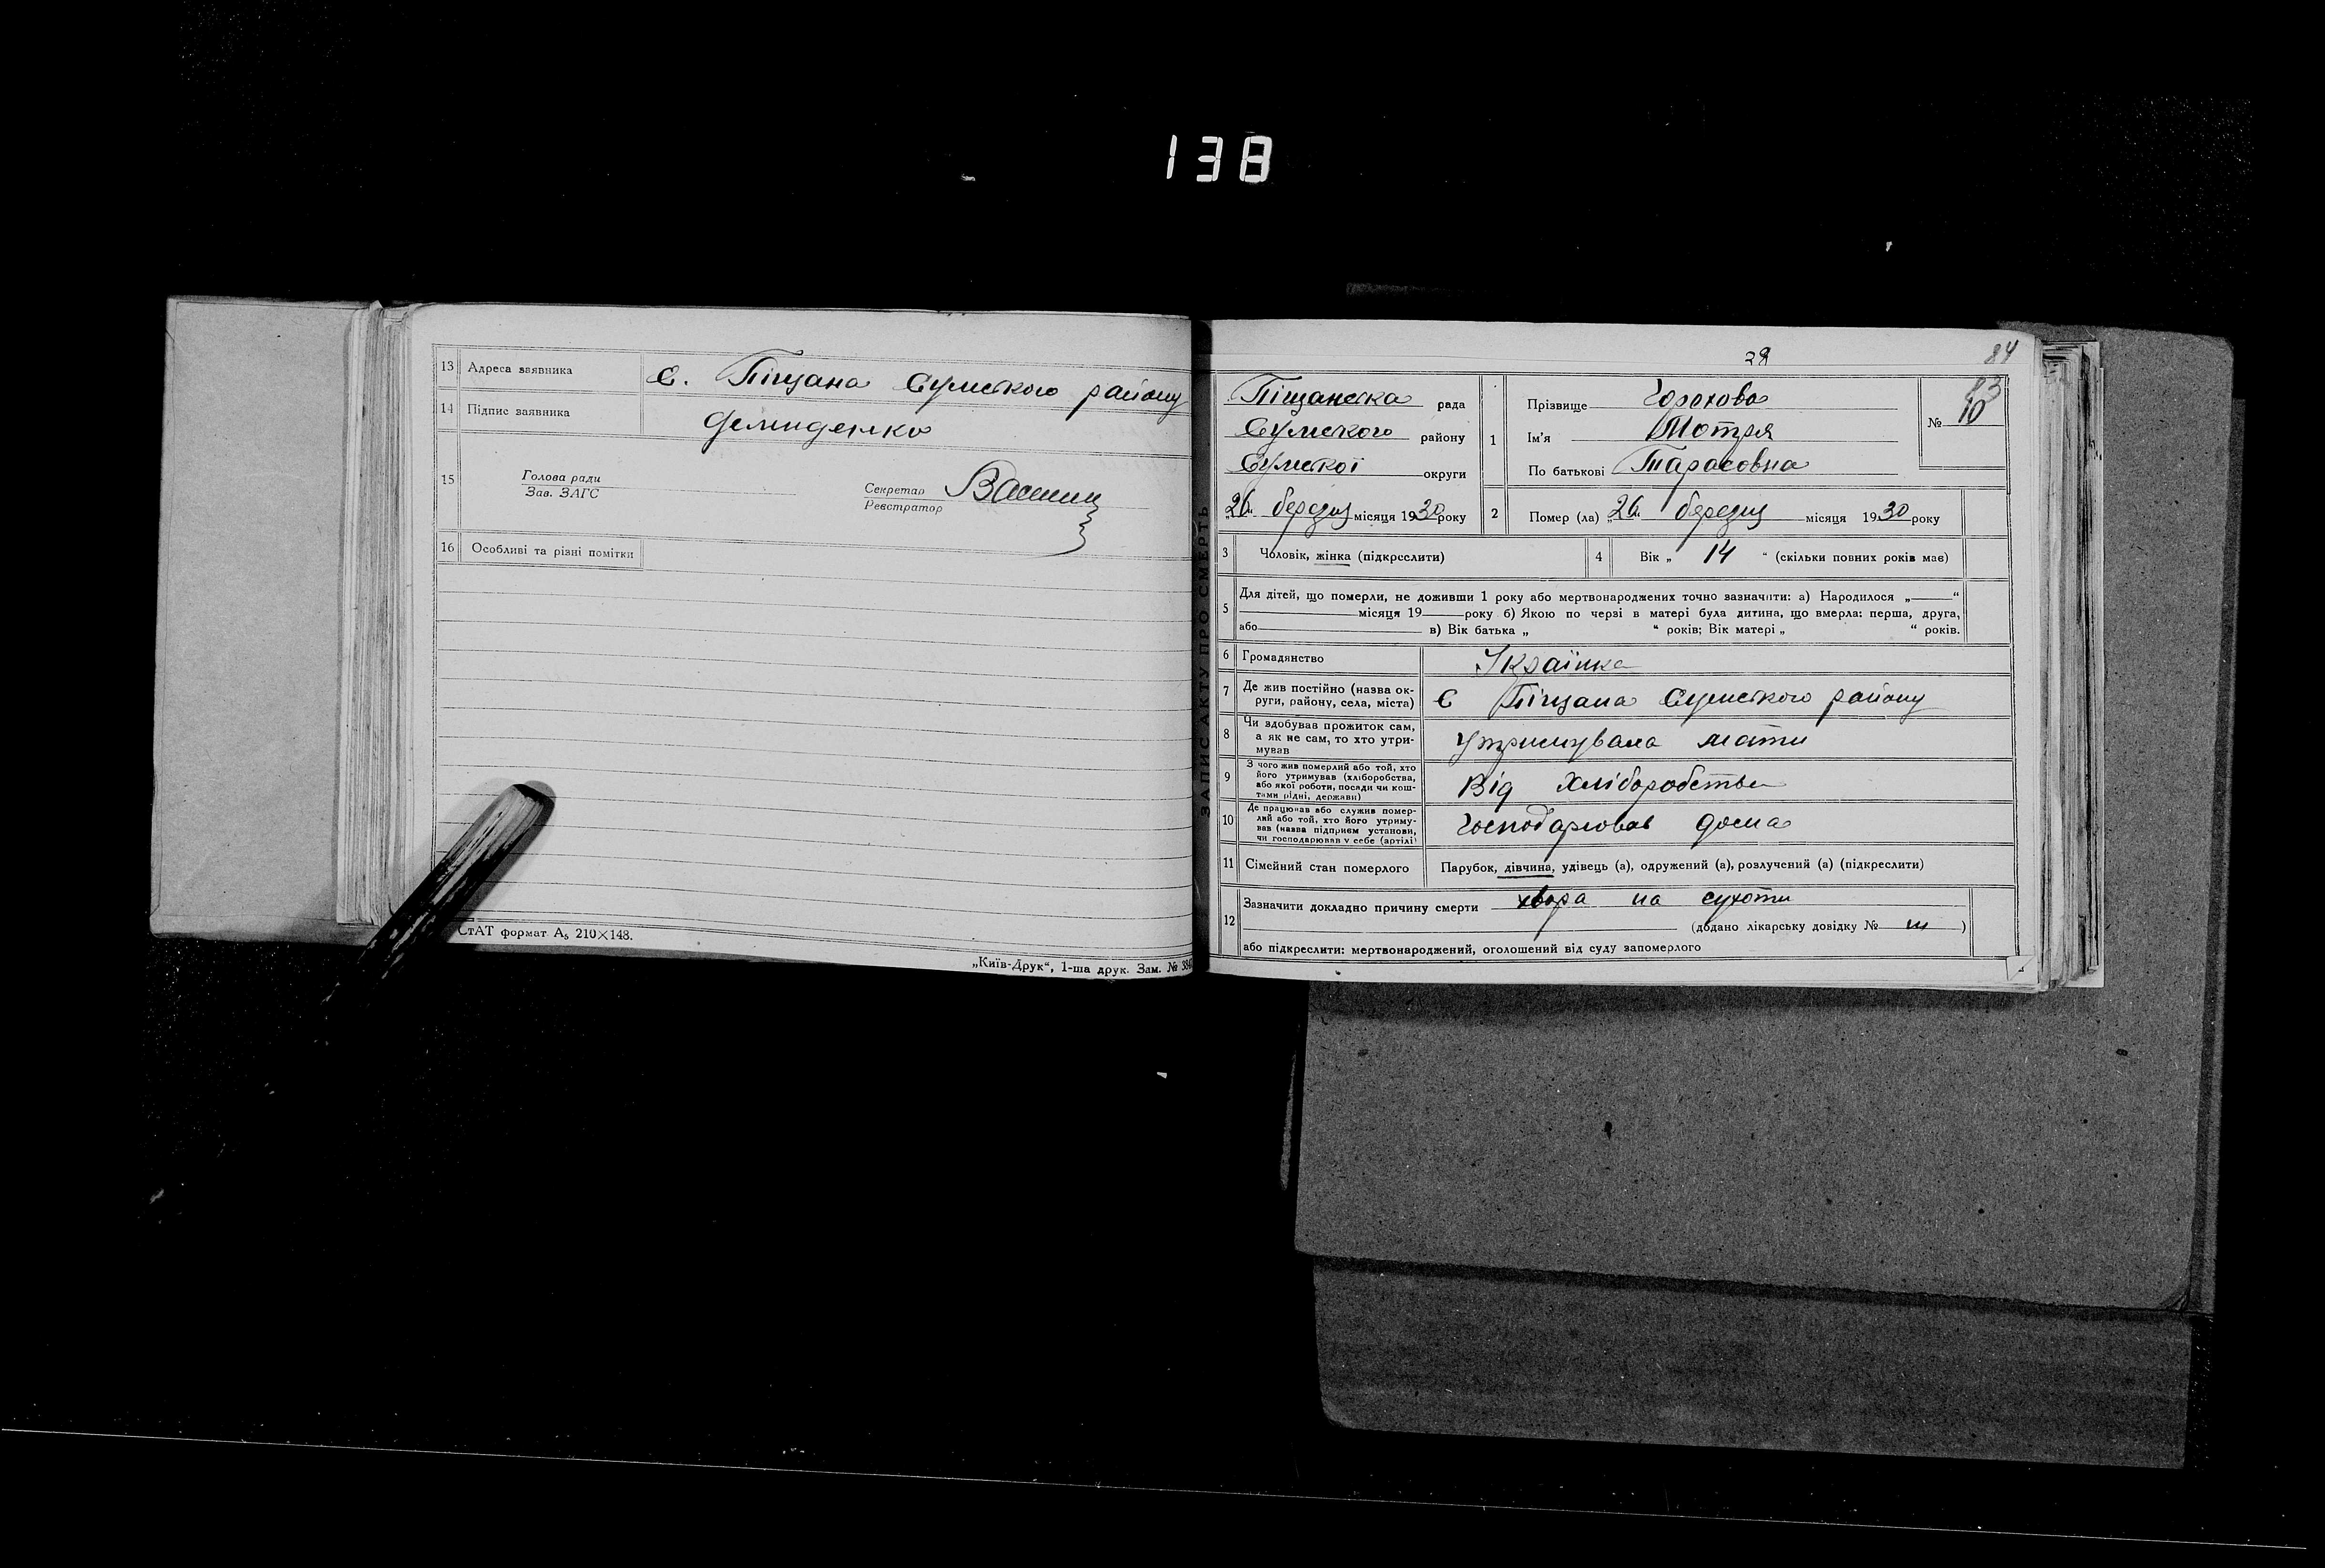 138
13 Адреса заявника с. Піщана Сумського району
14 Підпис заявника Демиденко
15 Голова ради
Зав. ЗАГС
Секретар
Реєстратор
16 Особливі та різні помітки
СтАТ формат А₅ 210×148.
„Київ-Друк“, 1-ша друк. Зам. №
ЗАПИС АКТУ ПРО СМЕРТЬ
84
Піщанська рада
Сумського району
Сумської округи
„26“ березня місяця 1930 року
1 Прізвище Горохова
Ім'я Мотря
По батькові Тарасовна
№ 83
10
2 Помер (ла) „26“ березня місяця 1930 року
3 Чоловік, жінка (підкреслити)
4 Вік „ 14 “ (скільки повних років має)
5 Для дітей, що померли, не доживши 1 року або мертвонароджених точно зазначити: а) Народилося „ “
місяця 19 року б) Якою по черзі в матері була дитина, що вмерла: перша, друга,
або в) Вік батька „ “ років; Вік матері „ “ років.
6 Громадянство Українка
7 Де жив постійно (назва ок-
руги, району, села, міста) с Піщана Сумського району
8 Чи здобував прожиток сам,
а як не сам, то хто утри-
мував утримувала мати
9 З чого жив померлий або той, хто
його утримував (хліборобства,
або якої роботи, посади чи кош-
тами рідні, держави) Від хліборобства
10 Де працював або служив помер-
лий або той, хто його утриму-
вав (назва підприєм установи,
чи господарював у себе (артілі) господарював дома
11 Сімейний стан померлого Парубок, дівчина, удівець (а), одружений (а), розлучений (а) (підкреслити)
12 Зазначити докладно причину смерти хвора на сухоти
(додано лікарську довідку № )
або підкреслити: мертвонароджений, оголошений від суду запомерлого